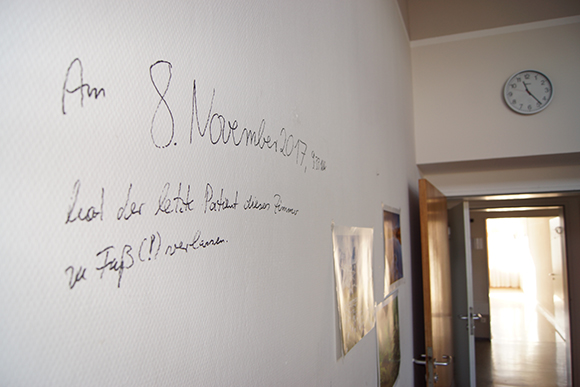 Am 8. November 2017,
hat der letzte Patient dieses Zimmer
zu Fuß (!) verlassen.